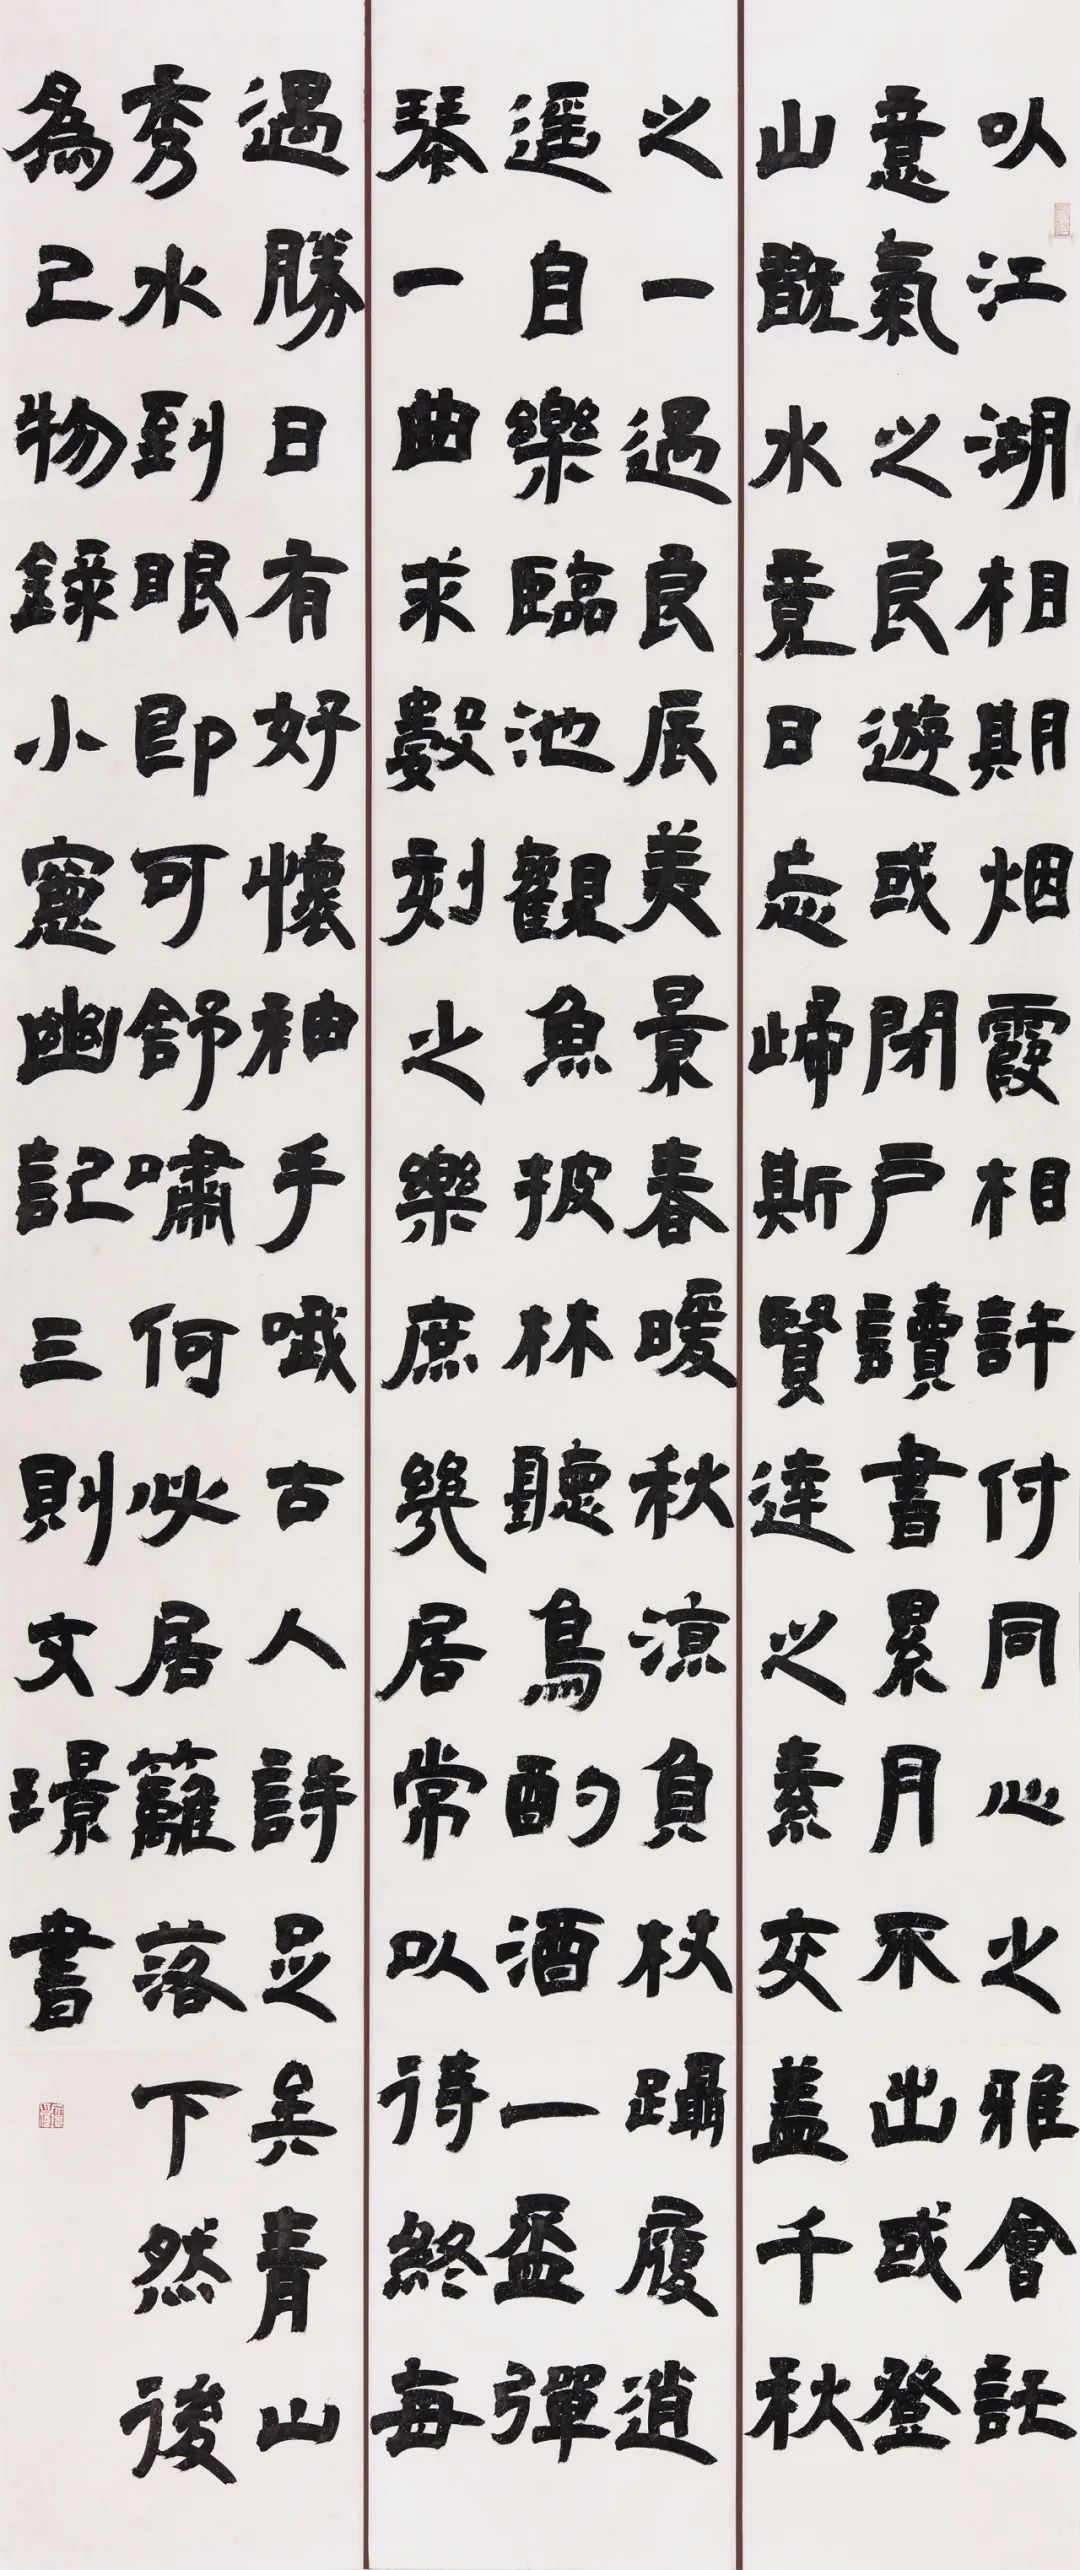 以江湖相期烟霞相許付同心之雅會託
意氣之良遊或閉戶讀書累月不出或登
山翫水竟日忘歸斯賢達之素交蓋千秋
之一遇良辰美景春暖秋涼負杖躡履逍
遥自樂臨池觀魚披林聽鳥酌酒一盃彈
琴一曲求數刻之樂庶幾居常以待終每
遇勝日有好懷袖手哦古人詩足矣青山
秀水到眼即可舒嘯何必居籬落下然後
為己物錄小窻幽記三則文璟書